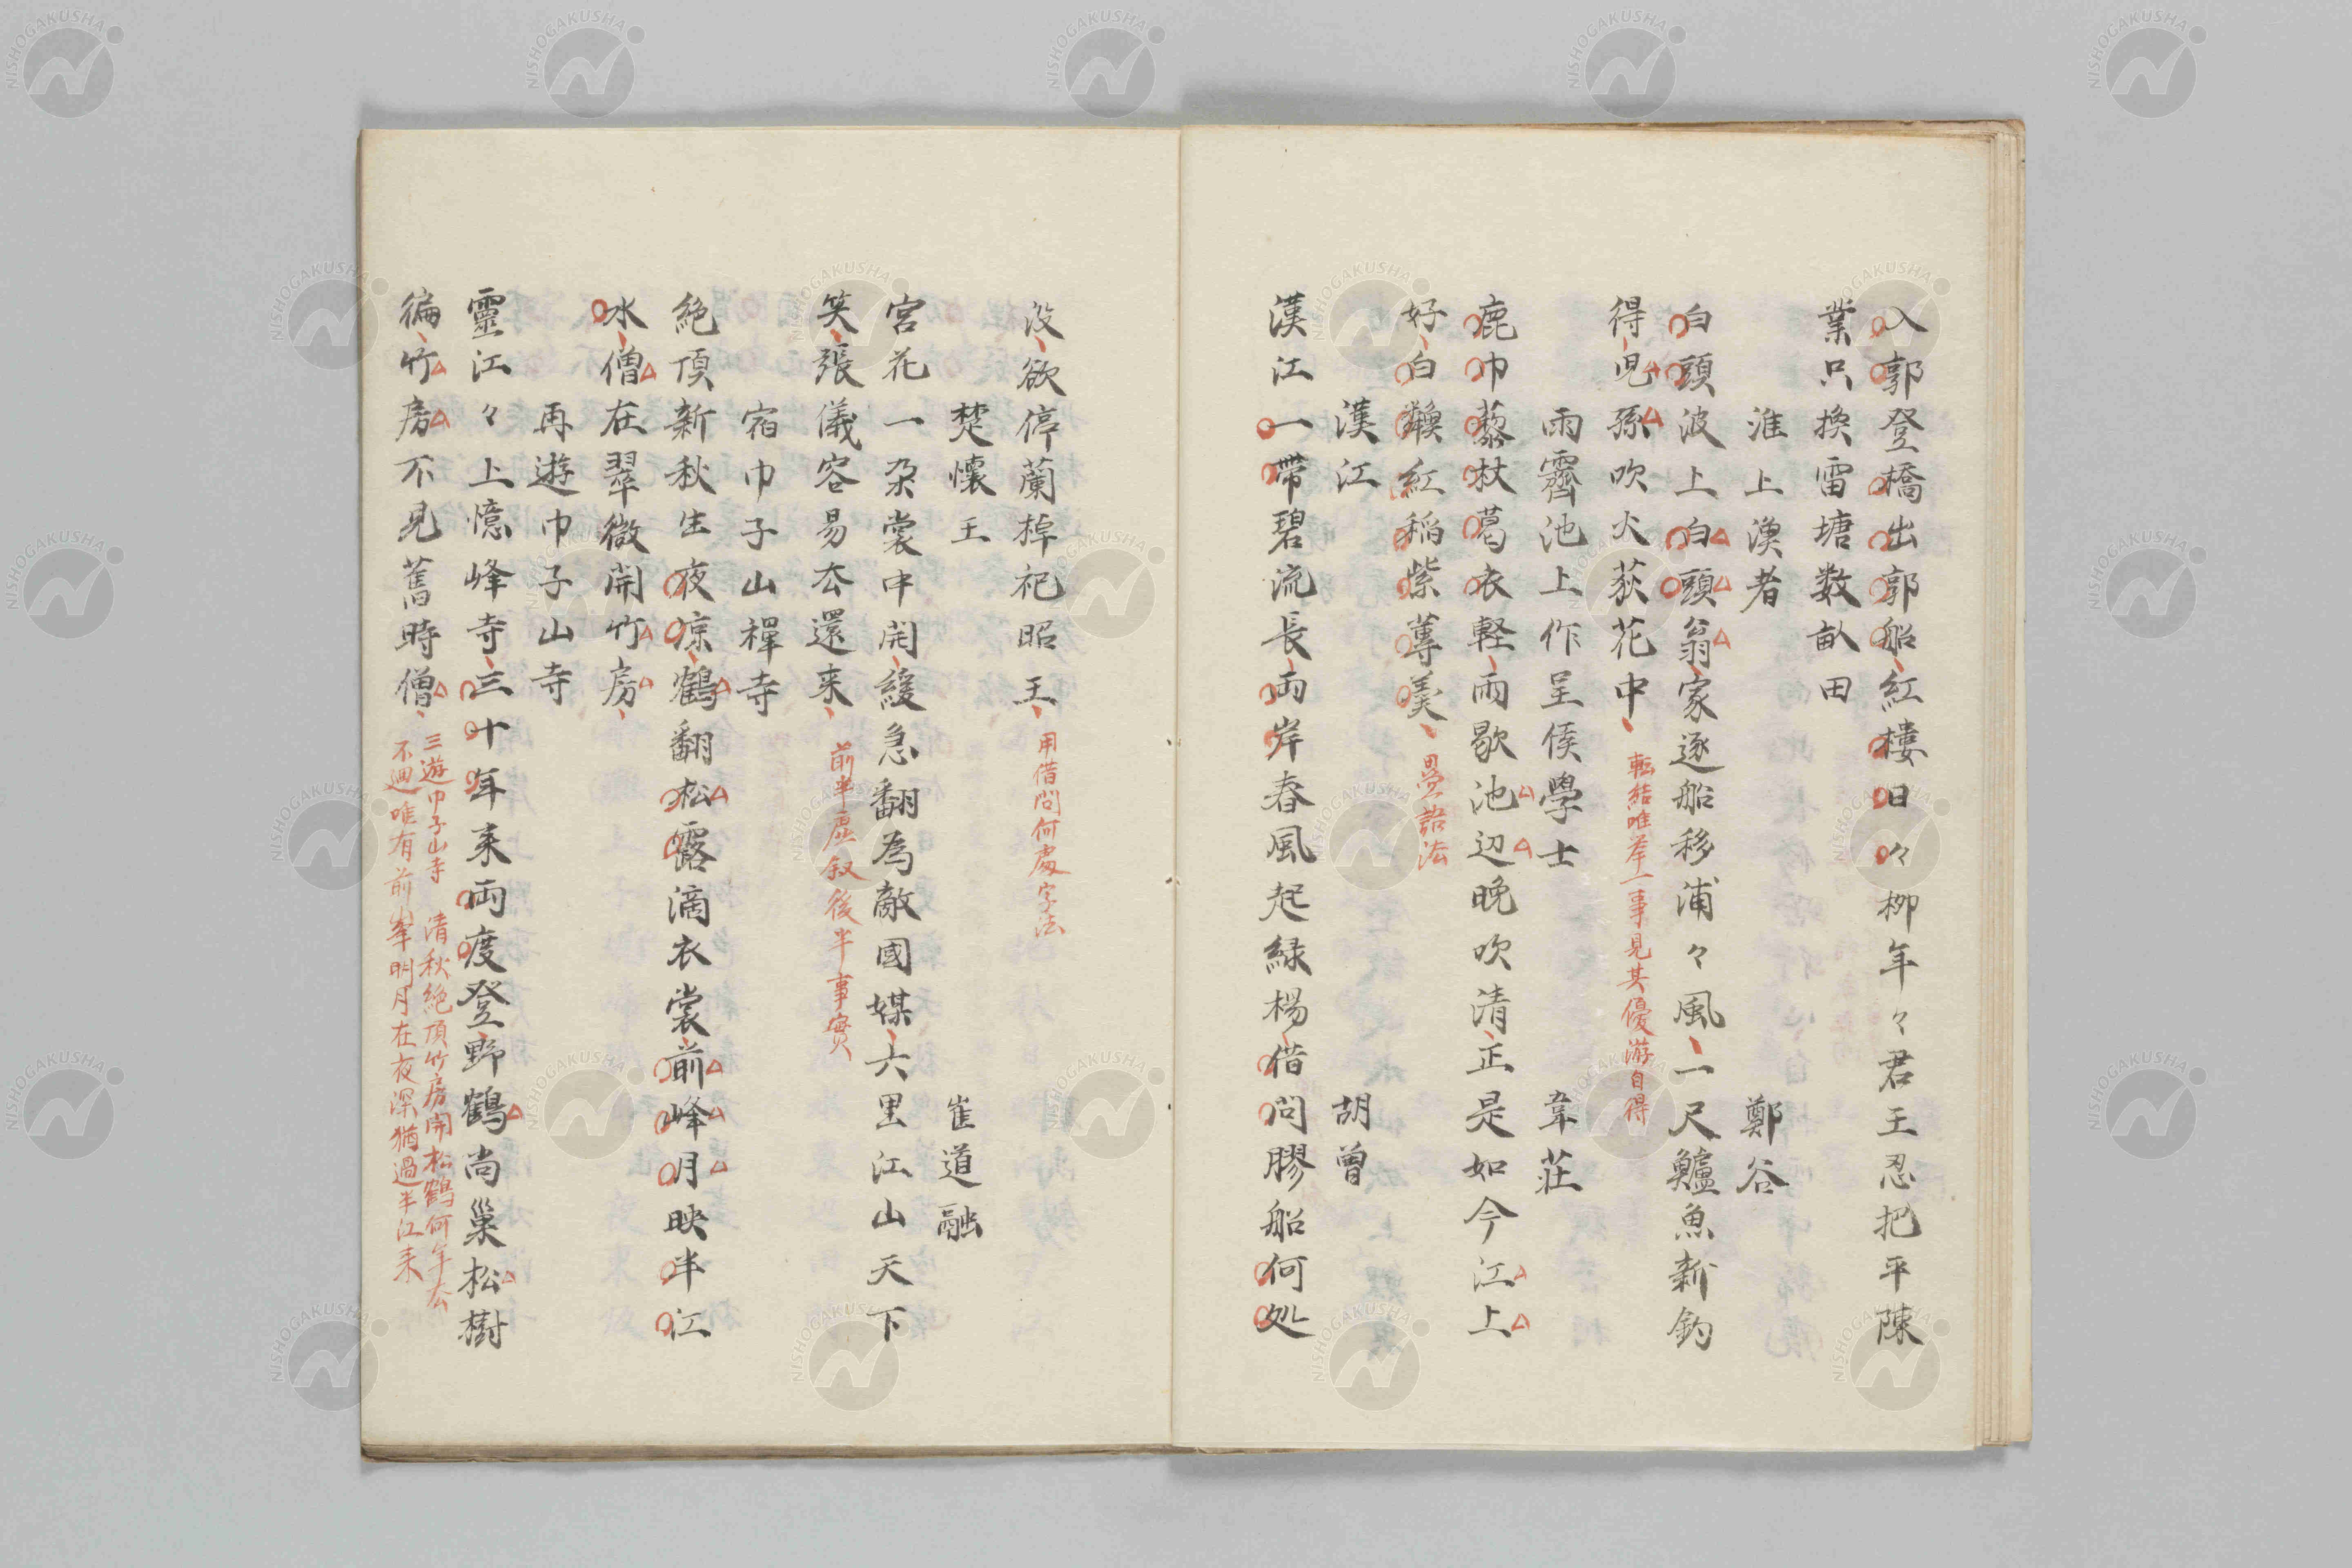 入郭登橋出郭船紅樓日々柳年々君王忍把平陳
業只換雷塘数畝田
淮上漁者　鄭谷
白頭波上白頭翁家逐船移浦々風一尺鱸魚新釣
得児孫吹火荻花中
転結唯挙一事見其優游自得
雨霽池上作呈侯學士　韋荘
鹿巾藜杖葛衣軽雨歇池辺晩吹清正是如今江上
好白鱗紅稲紫蓴羹
畳語法
漢江　胡曾
漢江一帯碧流長両岸春風起緑楊借問膠船何処
没欲停蘭棹祀昭王
用借問何處字法
楚懷王　崔道融
宮花一朶裳中開緩急翻為敵國媒六里江山天下
笑張儀容易厺還来
前半虚叙後半事實
宿巾子山禅寺
絶頂新秋生夜凉鶴翻松露滴衣裳前峰月映半江
水僧在翠微開竹房
再遊巾子山寺
靈江々上憶峰寺三十年来両度登野鶴尚巣松樹
徧竹房不見舊時僧
三遊巾子山寺　清秋絶頂竹房開松鶴何年厺
不廻唯有前峯明月在夜深猶過半江来
NISHOGAKUSHA